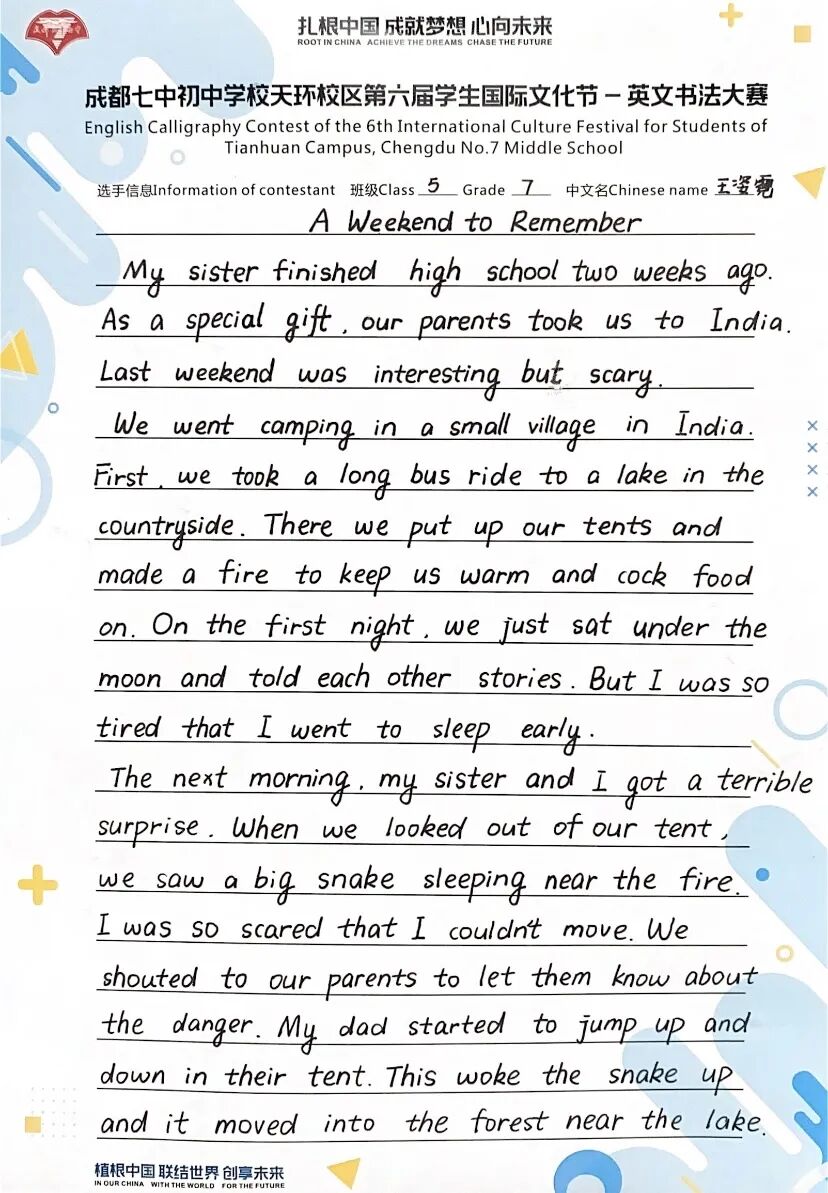 扎根中国 成就梦想 心向未来
ROOT IN CHINA ACHIEVE THE DREAMS CHASE THE FUTURE
成都七中初中学校天环校区第六届学生国际文化节－英文书法大赛
English Calligraphy Contest of the 6th International Culture Festival for Students of
Tianhuan Campus, Chengdu No.7 Middle School
选手信息Information of contestant 班级Class 5 Grade 7 中文名Chinese name 王姿霓
A Weekend to Remember
My sister finished high school two weeks ago.
As a special gift, our parents took us to India.
Last weekend was interesting but scary.
We went camping in a small village in India.
First, we took a long bus ride to a lake in the
countryside. There we put up our tents and
made a fire to keep us warm and cock food
on. On the first night, we just sat under the
moon and told each other stories. But I was so
tired that I went to sleep early.
The next morning, my sister and I got a terrible
surprise. When we looked out of our tent,
we saw a big snake sleeping near the fire.
I was so scared that I couldn't move. We
shouted to our parents to let them know about
the danger. My dad started to jump up and
down in their tent. This woke the snake up
and it moved into the forest near the lake.
植根中国 联结世界 创享未来
IN OUR CHINA WITH THE WORLD FOR THE FUTURE